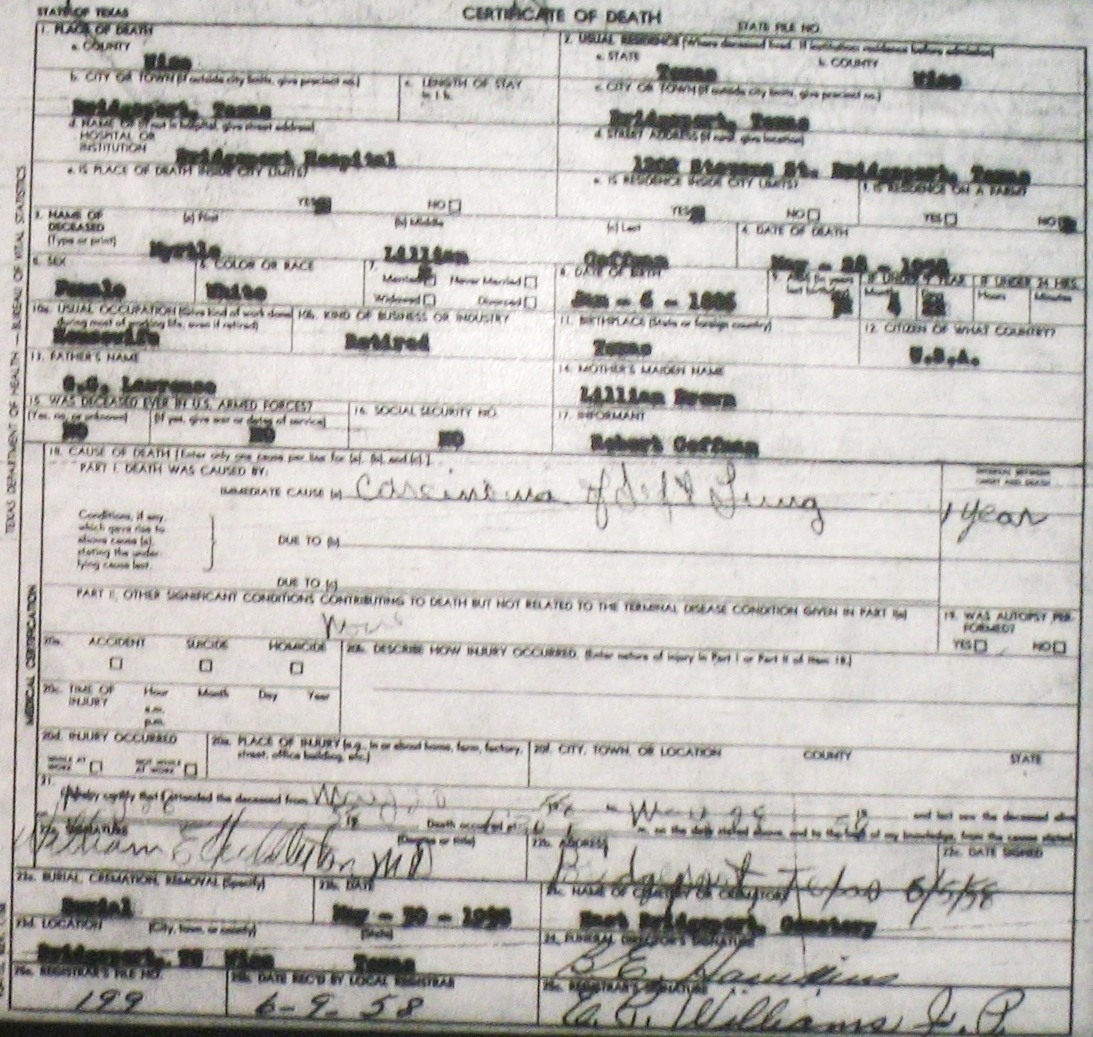 STATE OF TEXAS
CERTIFICATE OF DEATH
STATE FILE NO.
1. PLACE OF DEATH
a. COUNTY
Wise
2. USUAL RESIDENCE (Where deceased lived. If institution: residence before admission)
a. STATE
Texas
b. COUNTY
Wise
b. CITY OR TOWN (If outside city limits, give precinct no.)
Bridgeport, Texas
c. LENGTH OF STAY
in 1 b.
c. CITY OR TOWN (If outside city limits, give precinct no.)
Bridgeport, Texas
d. NAME OF (If not in hospital, give street address)
HOSPITAL OR
INSTITUTION
Bridgeport Hospital
d. STREET ADDRESS (If rural, give location)
1202 Stevens St. Bridgeport, Texas
e. IS PLACE OF DEATH INSIDE CITY LIMITS?
YES NO
e. IS RESIDENCE INSIDE CITY LIMITS?
YES NO
f. IS RESIDENCE ON A FARM?
YES NO
3. NAME OF
DECEASED
(Type or print)
(a) First
Myrtle
(b) Middle
Lillian
(c) Last
Coffman
4. DATE OF DEATH
May - 28 - 1958
5. SEX
Female
6. COLOR OR RACE
White
7.
Married Never Married
Widowed Divorced
8. DATE OF BIRTH
Jan - 6 -
9. AGE (In years
last birthday)
IF UNDER 1 YEAR
Months
4
Days
22
IF UNDER 24 HRS.
Hours
Minutes
10a. USUAL OCCUPATION (Give kind of work done
during most of working life, even if retired)
Housewife
10b. KIND OF BUSINESS OR INDUSTRY
Retired
11. BIRTHPLACE (State or foreign country)
Texas
12. CITIZEN OF WHAT COUNTRY?
U.S.A.
13. FATHER'S NAME
Lawrence
14. MOTHER'S MAIDEN NAME
Lillian Brown
15. WAS DECEASED EVER IN U.S. ARMED FORCES?
(Yes, no, or unknown)
NO
(If yes, give war or dates of service)
NO
16. SOCIAL SECURITY NO.
NO
17. INFORMANT
Robert Coffman
18. CAUSE OF DEATH [Enter only one cause per line for (a), (b), and (c).]
PART I. DEATH WAS CAUSED BY:
IMMEDIATE CAUSE (a) Carcinoma of left Lung
INTERVAL BETWEEN
ONSET AND DEATH
1 year
Conditions, if any,
which gave rise to
above cause (a),
stating the under-
lying cause last.
DUE TO (b)
DUE TO (c)
PART II. OTHER SIGNIFICANT CONDITIONS CONTRIBUTING TO DEATH BUT NOT RELATED TO THE TERMINAL DISEASE CONDITION GIVEN IN PART I(a)
None
19. WAS AUTOPSY PER-
FORMED?
YES NO
20a. ACCIDENT SUICIDE HOMICIDE
20b. DESCRIBE HOW INJURY OCCURRED. (Enter nature of injury in Part I or Part II of item 18.)
20c. TIME OF
INJURY
Hour Month Day Year
a.m.
p.m.
20d. INJURY OCCURRED
WHILE AT
WORK
NOT WHILE
AT WORK
20e. PLACE OF INJURY (e.g., in or about home, farm, factory,
street, office building, etc.)
20f. CITY, TOWN, OR LOCATION COUNTY STATE
21.
I hereby certify that I attended the deceased from May 20 58 May 28 58 and last saw the deceased alive
Death occurred at m. on the date stated above, and to the best of my knowledge, from the causes stated.
22a. SIGNATURE
(Degree or title)
William MD
22b. ADDRESS
Bridgeport Texas
22c. DATE SIGNED
6/5/58
23a. BURIAL, CREMATION, REMOVAL (Specify)
Burial
23b. DATE
May - 30 - 1958
23c. NAME OF CEMETERY OR CREMATORY
East Bridgeport, Cemetery
23d. LOCATION (City, town, or county) (State)
Bridgeport, Wise Texas
24. FUNERAL DIRECTOR'S SIGNATURE
B.E. Hawkins
25a. REGISTRAR'S FILE NO.
199
25b. DATE REC'D BY LOCAL REGISTRAR
6-9-58
25c. REGISTRAR'S SIGNATURE
Williams J.P.
TEXAS DEPARTMENT OF HEALTH — BUREAU OF VITAL STATISTICS
MEDICAL CERTIFICATION